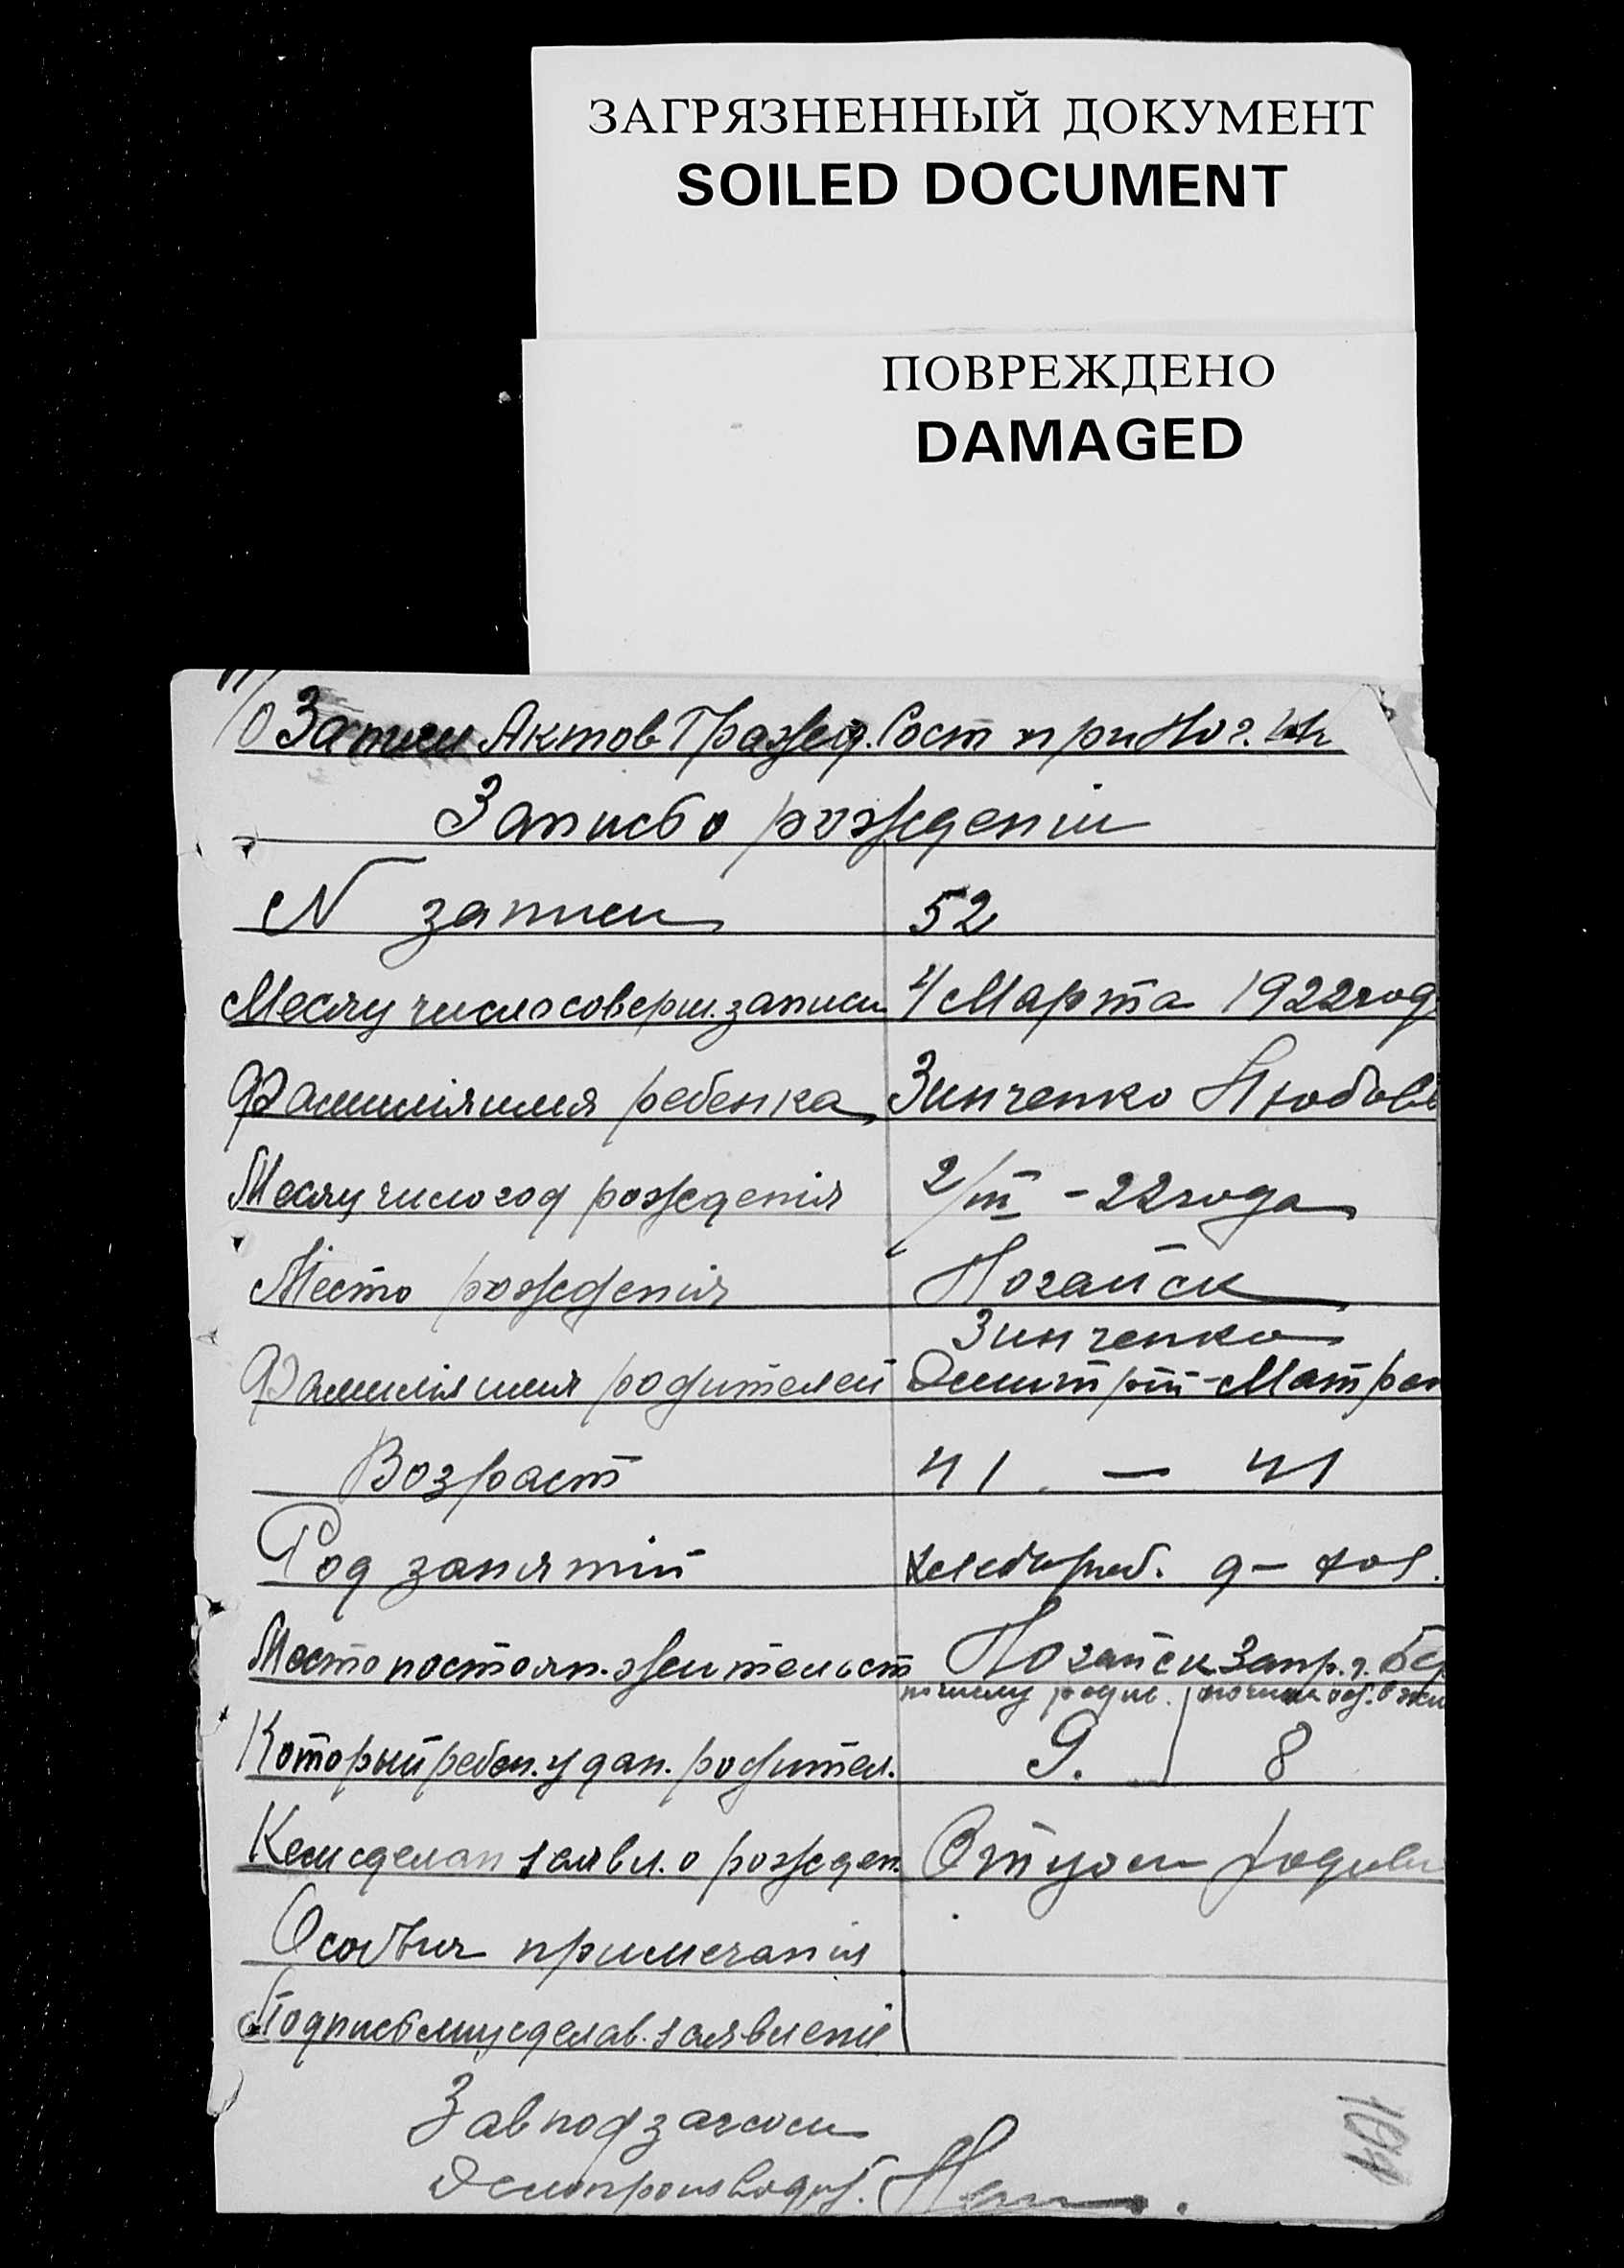 ЗАГРЯЗНЕННЫЙ ДОКУМЕНТ
SOILED DOCUMENT
ПОВРЕЖДЕНО
DAMAGED
П/О Записи Актов Гражд. Сост при Ног.
Запись о рожденіи
N записи 52
Месяц число соверш. записи 4 Марта 1922 год
Фамилія имя ребенка Зинченко Любовь
Месяц число год рожденія 2/III - 22 года
Место рожденія Ногайск
Зинченко
Фамилія имя родителей Дмитрій - Матрен
Возраст 41 — 41
Род занятій хлебороб. д-хоз.
Место постоян. жительст Ногайск Запр. г. Бер
Который ребен. у дан. родител. 9. 8
Кем сделан заявл. о рожден. Отцом
Особыя примечанія
Подпись лиц сделав. заявленіе
Зав подзагсом
Делопроизводит.
164